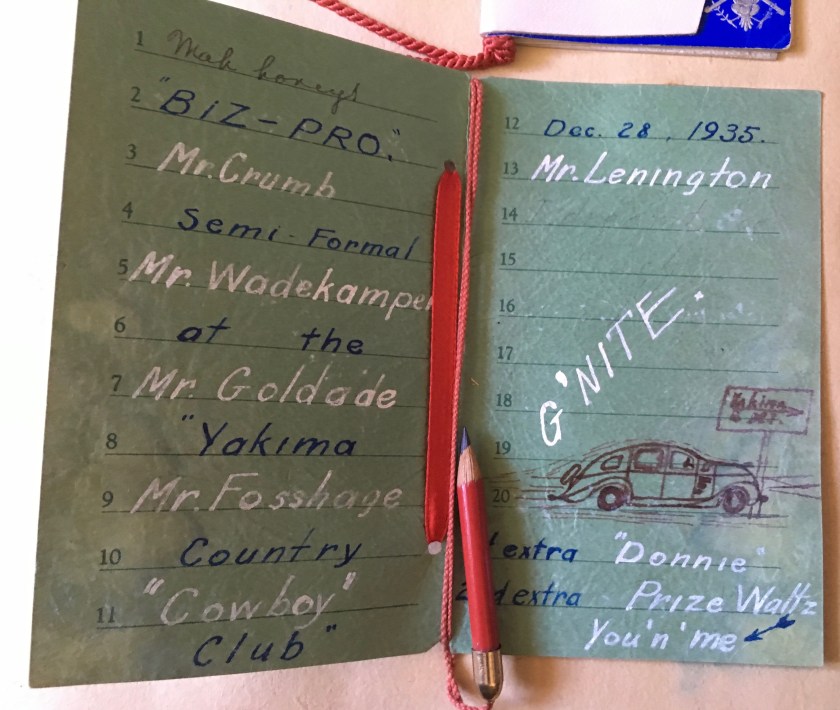 1 Mah honey!
2 "BIZ-PRO."
3 Mr. Crumb
4 Semi-Formal
5 Mr. Wadekamper
6 at the
7 Mr. Goldade
8 "Yakima
9 Mr. Fosshage
10 Country
11 "Cowboy"
Club"
12 Dec. 28, 1935.
13 Mr. Lenington
14
15
16
G'NITE.
17
18
Yakima
19
20
extra "Donnie"
2nd extra Prize Waltz
You'n'me